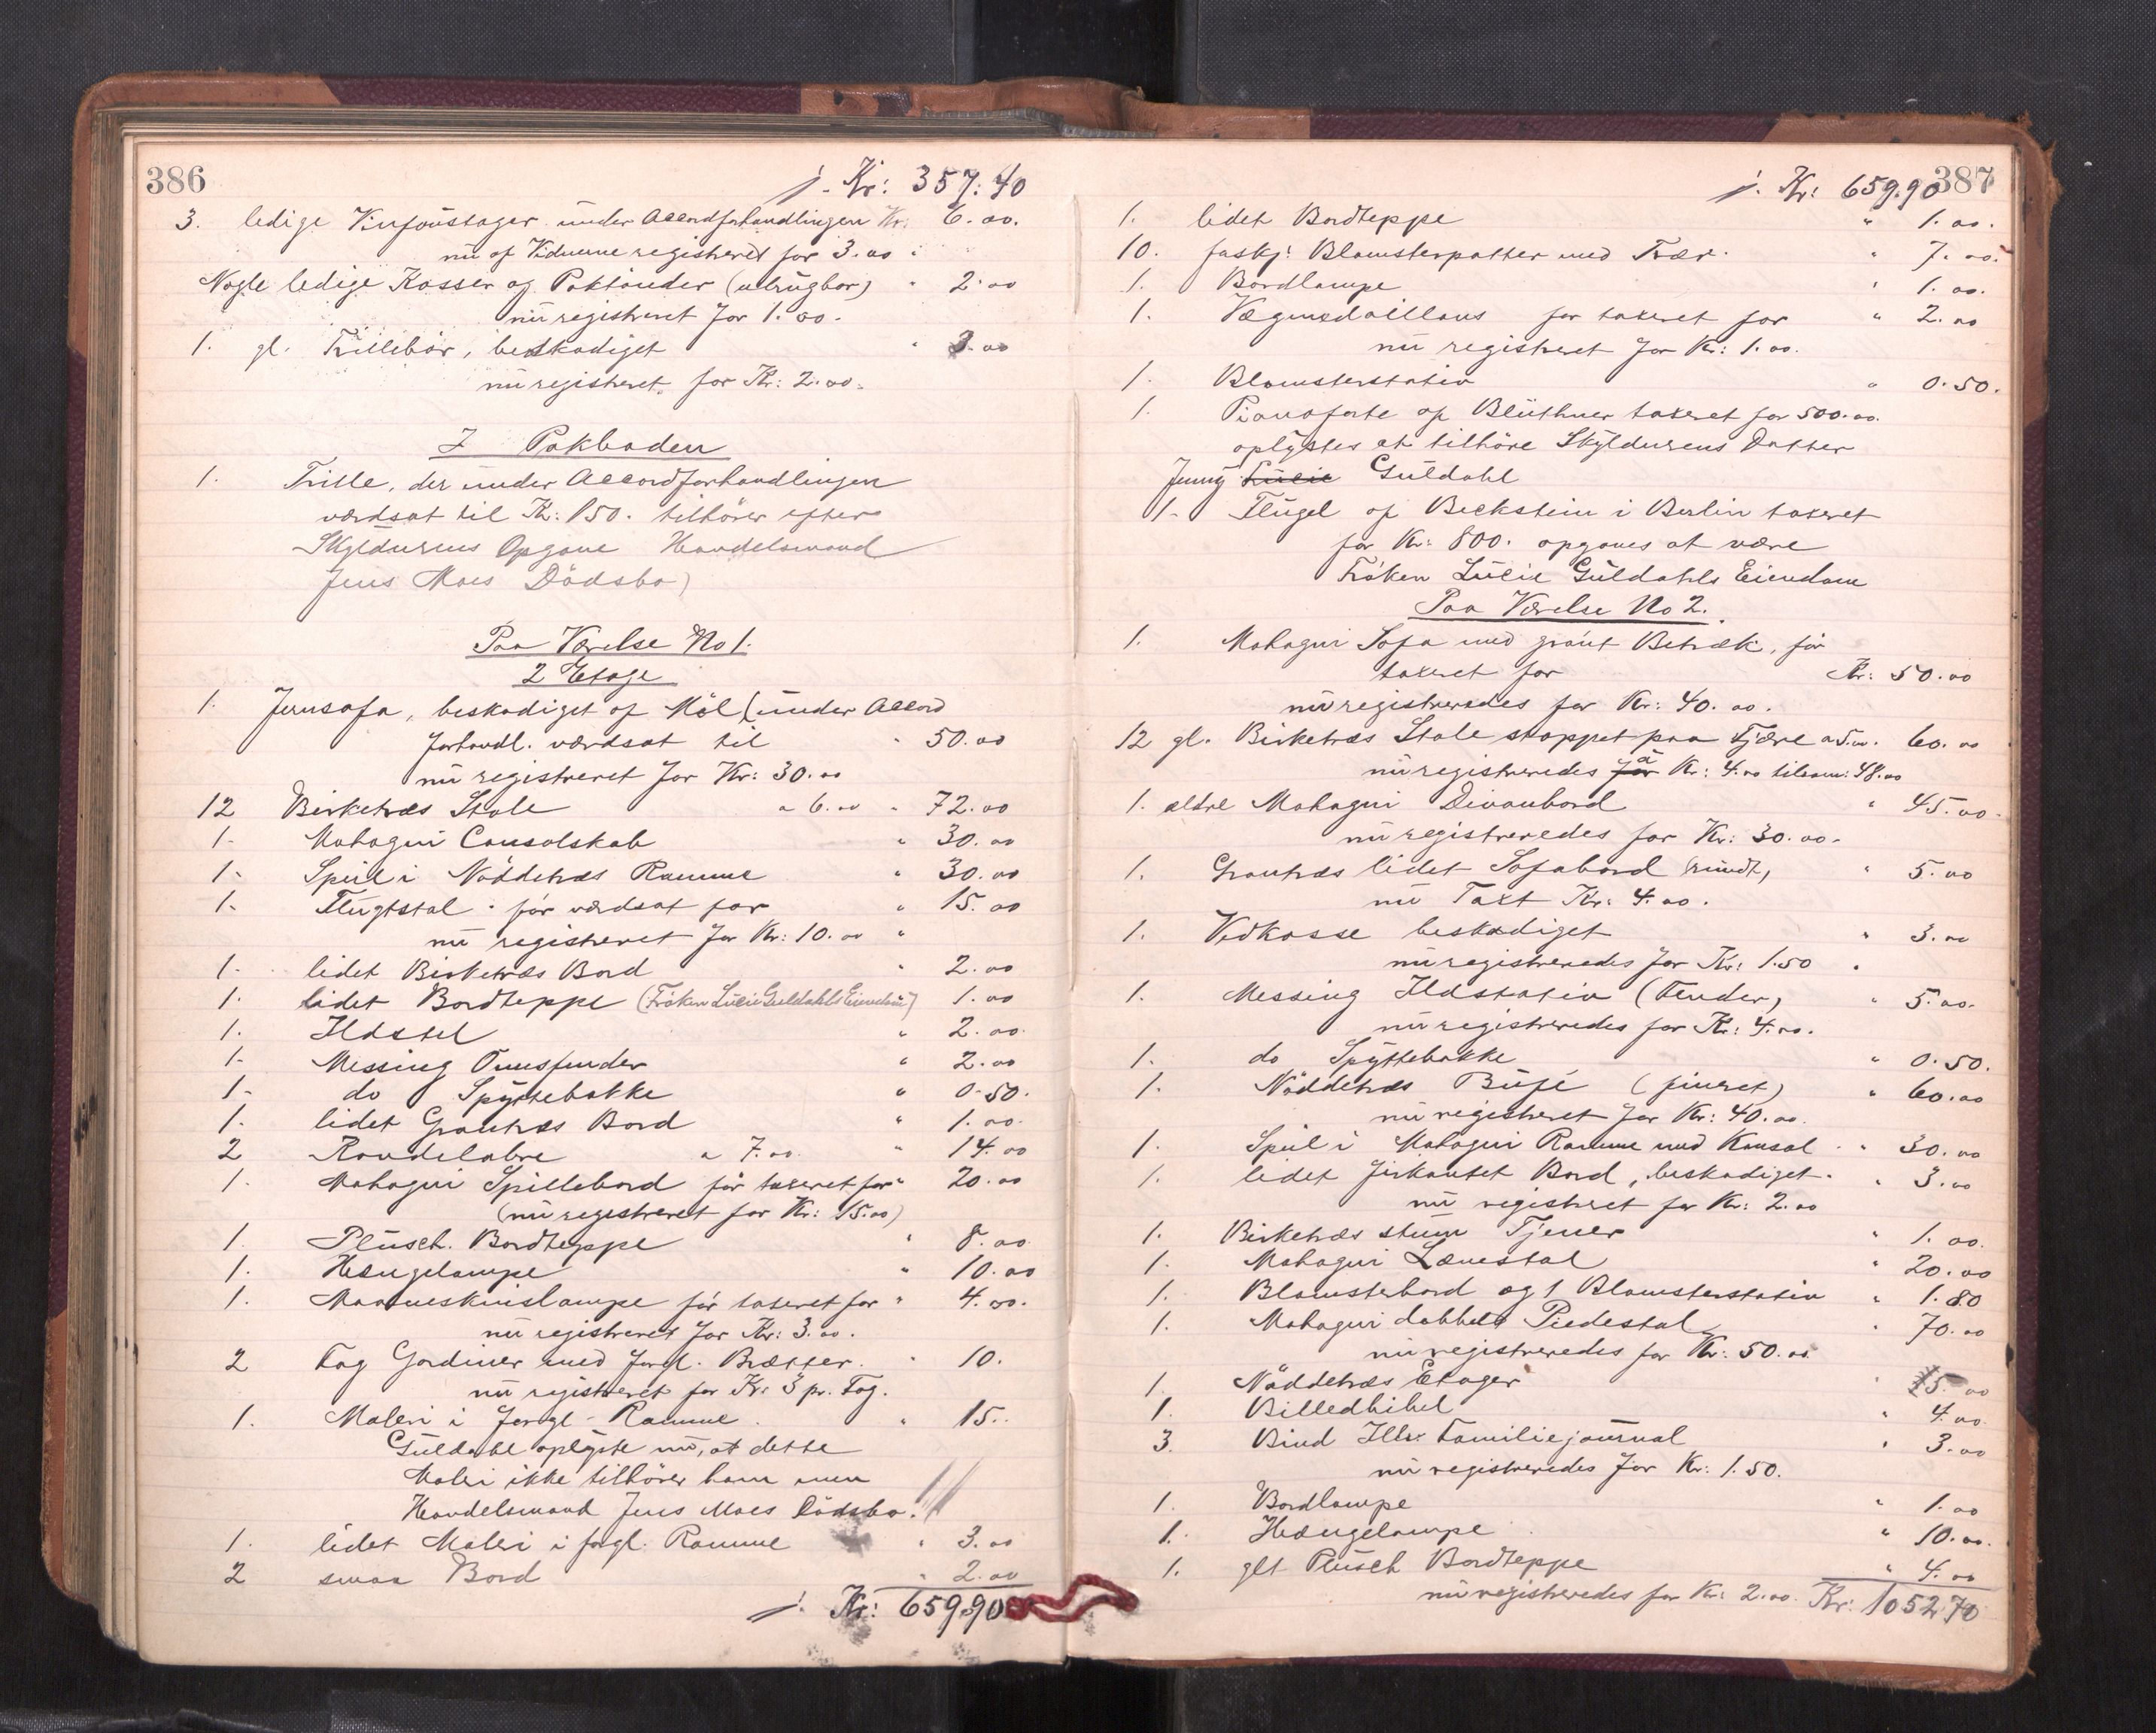 386
j. Kr: 357.40
3. ledige Vinfoustager under Accordforhandlingen Kr. 6.00.
nu af Vidnerne registreret for 3.00
Nogle ledige Kasser og Paktønder (ubrugbar) " 2.00
nu registreret for 1.00.
1. gl. Trillebør, beskadiget " 3.00
nu registreret for Kr: 2.00.
I Pakboden
1. Trille, der under Accordforhandlingen
værdsat til Kr: 150. tilhører efter
Skyldnerens Opgave Handelsmand
Jens Moes Dødsbo)
Paa Værelse No 1.
2 Etage
1. Jernsofa, beskadiget af Møl (under Accord
forhandl. værdsat til " 50.00
nu registreret for Kr: 30.00
12 Birketræs Stole a 6.00 " 72.00
1. Mahogni Consolskab " 30.00
1. Speil i Nøddetræs Ramme " 30.00
1. Flugtstol . før værdsat for " 15.00
nu registreret for Kr: 10.00 "
1. lidet Birketræs Bord " 2.00
1. lidet Bordteppe (Frøken Lucie Guldahls Eiendom) 1.00
1. Ildstel " 2.00.
1. Messing Ovnsfender " 2.00
1. do Spyttebakke " 0.50.
1. lidet Grantræs Bord " 1.00.
2 Kandelabre a 7.00. " 14.00
1. Mahogni Spillebord før taxeret for " 20.00
(nu registreret for Kr: 15.00)
1. Plusch. Bordteppe " 8.00
1. Hængelampe " 10.00
1. Maaneskinslampe før taxeret for " 4.00.
nu registreret for Kr: 3.00.
2 Fag Gardiner med forgl. Brætter. " 10.
nu registreret for Kr: 3 pr. Fag.
1. Maleri i forgl. Ramme. " 15..
Guldahl oplyste nu, at dette
Maleri ikke tilhører ham men
Handelsmand Jens Moes Dødsbo.
1. lidet Maleri i forgl. Ramme " 3.00
2 smaa Bord " 2.00
j. Kr: 659.90
387
j. Kr: 659.90
1. lidet Bordteppe " 1.00.
10. forskj: Blomsterpotter med Trær. " 7.00.
1. Bordlampe " 1.00.
1. Vægmedaillons før taxeret for " 2.00
nu registreret for Kr: 1.00.
1. Blomsterstativ " 0.50.
1. Pianoforte af Blüthner taxeret for 500.00.
oplystes at tilhøre Skyldnerens Datter
Jenny Lucie Guldahl
1. Flygel af Beckstein i Berlin taxeret
for Kr: 800. opgaves at være
Frøken Lucie Guldahls Eiendom
Paa Værelse No 2.
1. Mahogni Sofa med grønt Betræk, før
taxeret for Kr: 50.00
nu registreredes for Kr: 40.00.
12 gl. Birketræs Stole stoppet paa Fjære a 5.00. 60.00
nu registreredes for a Kr: 4.00 tilsam: 48.00
1. ældre Mahogni Divanbord " 45.00.
nu registreredes for Kr: 30.00.
1. Grantræs lidet Sofabord (rundt) " 5.00
nu Taxt Kr: 4.00.
1. Vedkasse beskadiget " 3.00
nu registreredes for Kr: 1.50
1. Messing Ildstativ (Fender) " 5.00.
nu registreredes for Kr: 4.00.
1. do Spyttebakke " 0.50.
1. Nøddetræs Bufé (fineret) " 60.00
nu registreret for Kr: 40.00.
1. Speil i Mahogni Ramme med Konsol " 30.00
1. lidet firkantet Bord, beskadiget. " 3.00
nu registreret for Kr: 2.00
1. Birketræs stum Tjener " 1.00.
1. Mahogni Lænestol " 20.00
1. Blomsterbord og 1 Blomsterstativ " 1.80
1. Mahogni dobbelt Piedestal " 70.00
nu registreredes for Kr: 50.00.
1. Nøddetræs Etager " 15.00
1. Billedbibel " 4.00.
3. Bind Illr: Familiejournal " 3.00
nu registreredes for Kr: 1.50.
1. Bordlampe " 1.00
1. Hængelampe " 10.00.
1. glt Plusch Bordteppe " 4.00
nu registreredes for Kr: 2.00. Kr: 1052.70